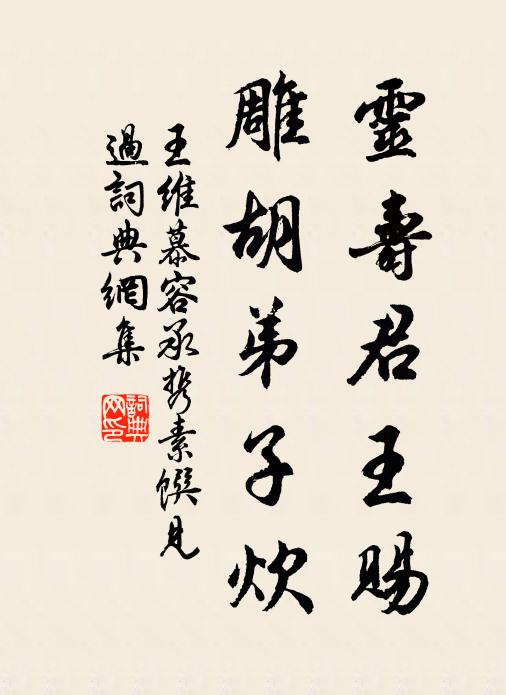 靈壽君王賜
雕胡弟子炊
王維慕容承攜素饌見
過詞典網集
詞典
网印